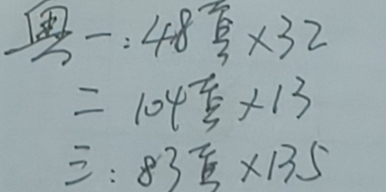 奥一:48套×32
二 104套×13
三:83套×135